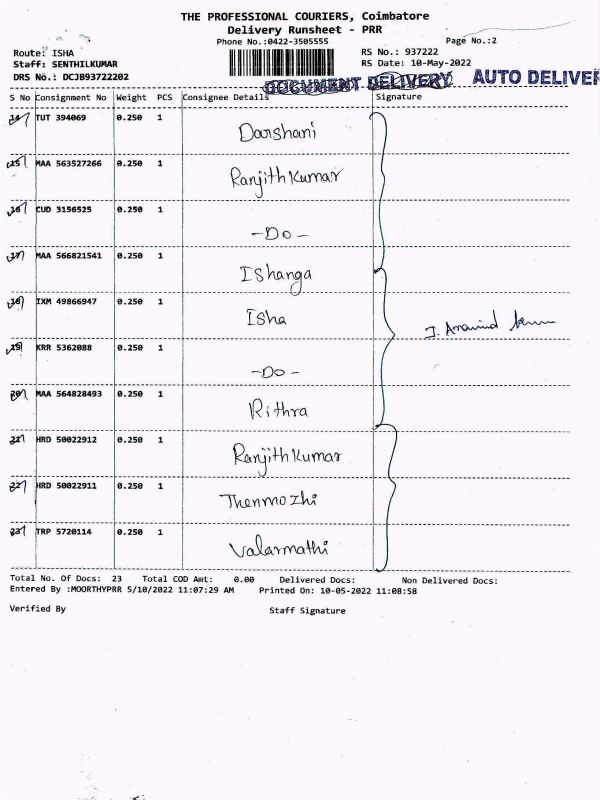 THE PROFESSIONAL COURIERS, Coimbatore
Delivery Runsheet - PRR
Phone No.:0422-3505555
Page No.:2
Route: ISHA
RS No.: 937222
Staff: SENTHILKUMAR
RS Date: 10-May-2022
DRS No.: DCJB93722202
DOCUMENT DELIVERY AUTO DELIVER
S No Consignment No Weight PCS Consignee Details Signature
14 TUT 394069 0.250 1 Darshani
15 MAA 563527266 0.250 1 Ranjith Kumar
16 CUD 3156525 0.250 1 -Do-
17 MAA 566821541 0.250 1 Ishanga
18 IXM 49866947 0.250 1 Isha
J. Aravind
19 KRR 5362088 0.250 1 -Do-
20 MAA 564828493 0.250 1 Rithra
21 HRD 50022912 0.250 1 Ranjith Kumar
22 HRD 50022911 0.250 1 Thenmozhi
23 TRP 5720114 0.250 1 Valarmathi
Total No. Of Docs: 23 Total COD Amt: 0.00 Delivered Docs: Non Delivered Docs:
Entered By :MOORTHYPRR 5/10/2022 11:07:29 AM Printed On: 10-05-2022 11:08:58
Verified By Staff Signature